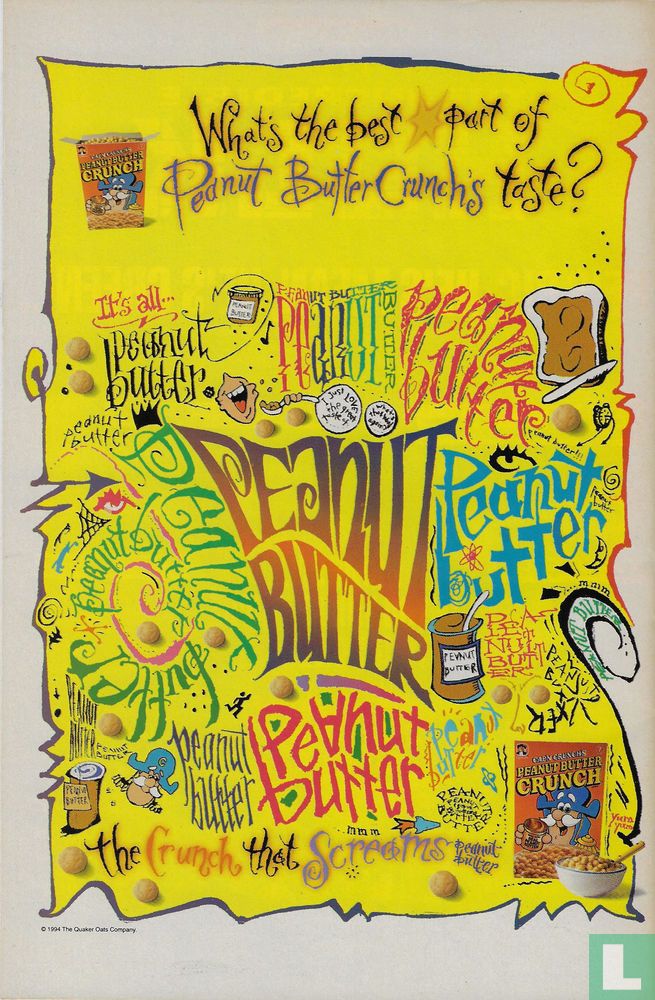 What's the best part of
Peanut Butter Crunch's taste?
CAP'N CRUNCH'S
PEANUT BUTTER
CRUNCH
It's all...
PEANUT
BUTTER
Peanut
butter
PEANUT BUTTER
PEANUT
BUTTER
peanut
butter
I Just LOVE
the great
taste of
peanut
butter
peanut butter!!!
PEANUT
BUTTER
Peanut
butter
Peanut
butter
peanut
butter
peanut butter
mmm
PEANUT BUTTER
PEANUT
BUTTER
PEA-
NUT
BUTT
ER
PEANUT
BUTTER
Peanut
butter
peanut
butter
Peanut
butter
Peanut
butter
PEANUT
BUTTER
PEANUT
BUTTER
mmm
CAP'N CRUNCH'S
PEANUT BUTTER
CRUNCH
Yum
yum
the Crunch that Screams peanut
butter
© 1994 The Quaker Oats Company.
L